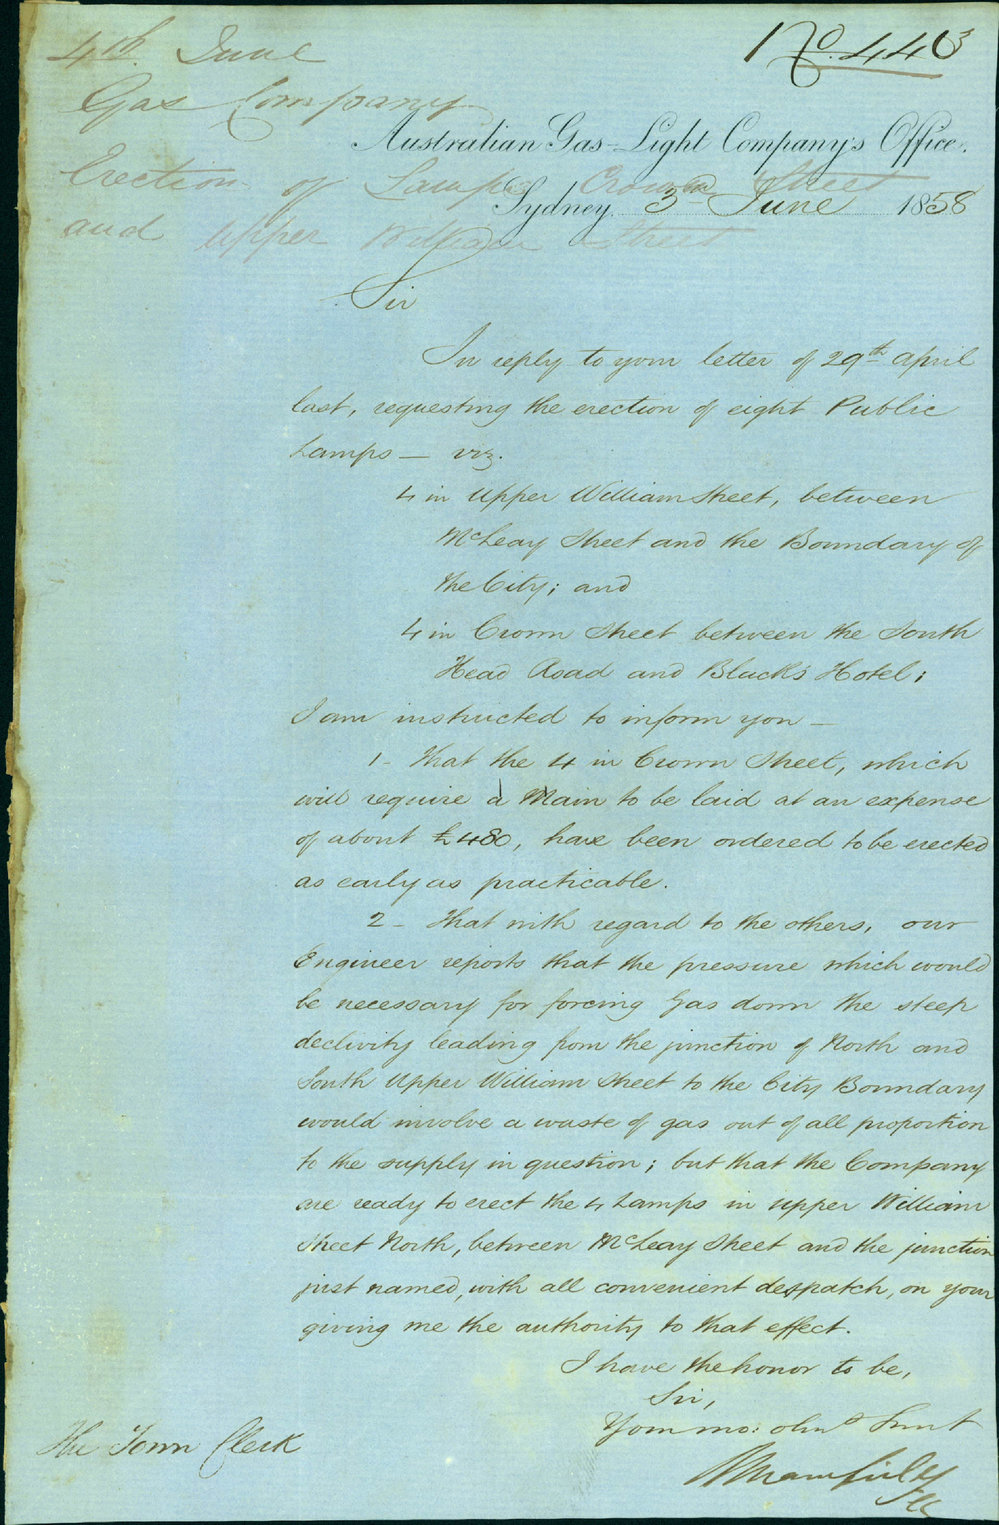 4th. June
No. 443
Gas Company
Australian Gas-Light Company's Office.
Erection of Lamps Crown Street
Sydney 3rd June 1858
and Upper William Street
Sir
In reply to your letter of 29th April
last, requesting the erection of eight Public
Lamps — viz.
4 in Upper William Street, between
McLeay Street and the Boundary of
the City; and
4 in Crown Street between the South
Head Road and Black's Hotel;
I am instructed to inform you —
1 - That the 4 in Crown Street, which
will require a Main to be laid at an expense
of about £480, have been ordered to be erected
as early as practicable.
2 - That with regard to the others, our
Engineer reports that the pressure which would
be necessary for forcing Gas down the steep
declivity leading from the junction of North and
South Upper William Street to the City Boundary
would involve a waste of gas out of all proportion
to the supply in question; but that the Company
are ready to erect the 4 Lamps in upper William
Street North, between McLeay Street and the junction
just named, with all convenient despatch, on your
giving me the authority to that effect.
I have the honor to be,
Sir,
Your mo: obnt Servt
The Town Clerk
RMansfield